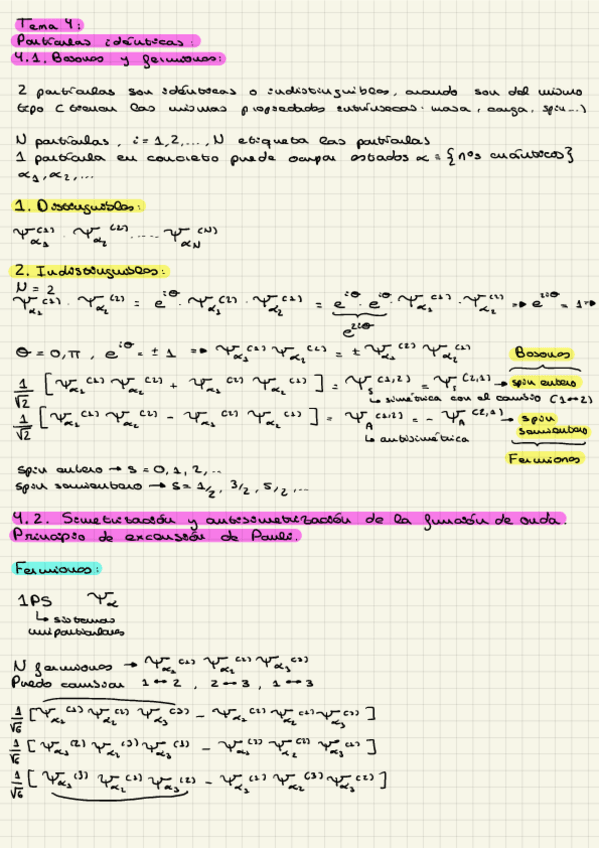 Tema 4:
Partículas idénticas:
4.1. Bosones y fermiones:
2 partículas son idénticas o indistinguibles, cuando son del mismo
tipo (tienen las mismas propiedades intrínsecas: masa, carga, spin...)
N partículas, i = 1,2,...,N etiqueta las partículas
1 partícula en concreto puede ocupar estados α = {nºs cuánticos}
α₁, α₂, ...
1. Distinguibles:
Ψα₁⁽¹⁾ · Ψα₂⁽²⁾ ..... ΨαN⁽ᴺ⁾
2. Indistinguibles:
N = 2
Ψα₁⁽¹⁾ · Ψα₂⁽²⁾ = e^{iθ} · Ψα₁⁽²⁾ · Ψα₂⁽¹⁾ = e^{iθ} · e^{iθ} · Ψα₁⁽¹⁾ · Ψα₂⁽²⁾ ⇒ e^{2iθ} = 1 ⇒
e^{2iθ}
θ = 0, π , e^{iθ} = ± 1 ⇒ Ψα₁⁽¹⁾ Ψα₂⁽²⁾ = ± Ψα₁⁽²⁾ Ψα₂⁽¹⁾
Bosones
1/√2 [Ψα₁⁽¹⁾ Ψα₂⁽²⁾ + Ψα₁⁽²⁾ Ψα₂⁽¹⁾] = Ψ_S(1,2) = Ψ_S(2,1) → spin entero
↳ simétrica con el cambio (1↔2)
1/√2 [Ψα₁⁽¹⁾ Ψα₂⁽²⁾ − Ψα₁⁽²⁾ Ψα₂⁽¹⁾] = Ψ_A(1,2) = − Ψ_A(2,1) → spin semientero
↳ antisimétrica
Fermiones
spin entero → s = 0, 1, 2, ..
spin semientero → s = 1/2, 3/2, 5/2, ...
4.2. Simetrización y antisimetrización de la función de onda.
Principio de exclusión de Pauli.
Fermiones:
1PS Ψα
↳ sistemas
uniparticulares
N fermiones → Ψα₁⁽¹⁾ Ψα₂⁽²⁾ Ψα₃⁽³⁾
Puedo cambiar 1 ↔ 2 , 2 ↔ 3 , 1 ↔ 3
1/√6 [Ψα₁⁽¹⁾ Ψα₂⁽²⁾ Ψα₃⁽³⁾ − Ψα₁⁽²⁾ Ψα₂⁽¹⁾ Ψα₃⁽³⁾]
1/√6 [Ψα₁⁽²⁾ Ψα₂⁽³⁾ Ψα₃⁽¹⁾ − Ψα₁⁽³⁾ Ψα₂⁽²⁾ Ψα₃⁽¹⁾]
1/√6 [Ψα₁⁽³⁾ Ψα₂⁽¹⁾ Ψα₃⁽²⁾ − Ψα₁⁽¹⁾ Ψα₂⁽³⁾ Ψα₃⁽²⁾]